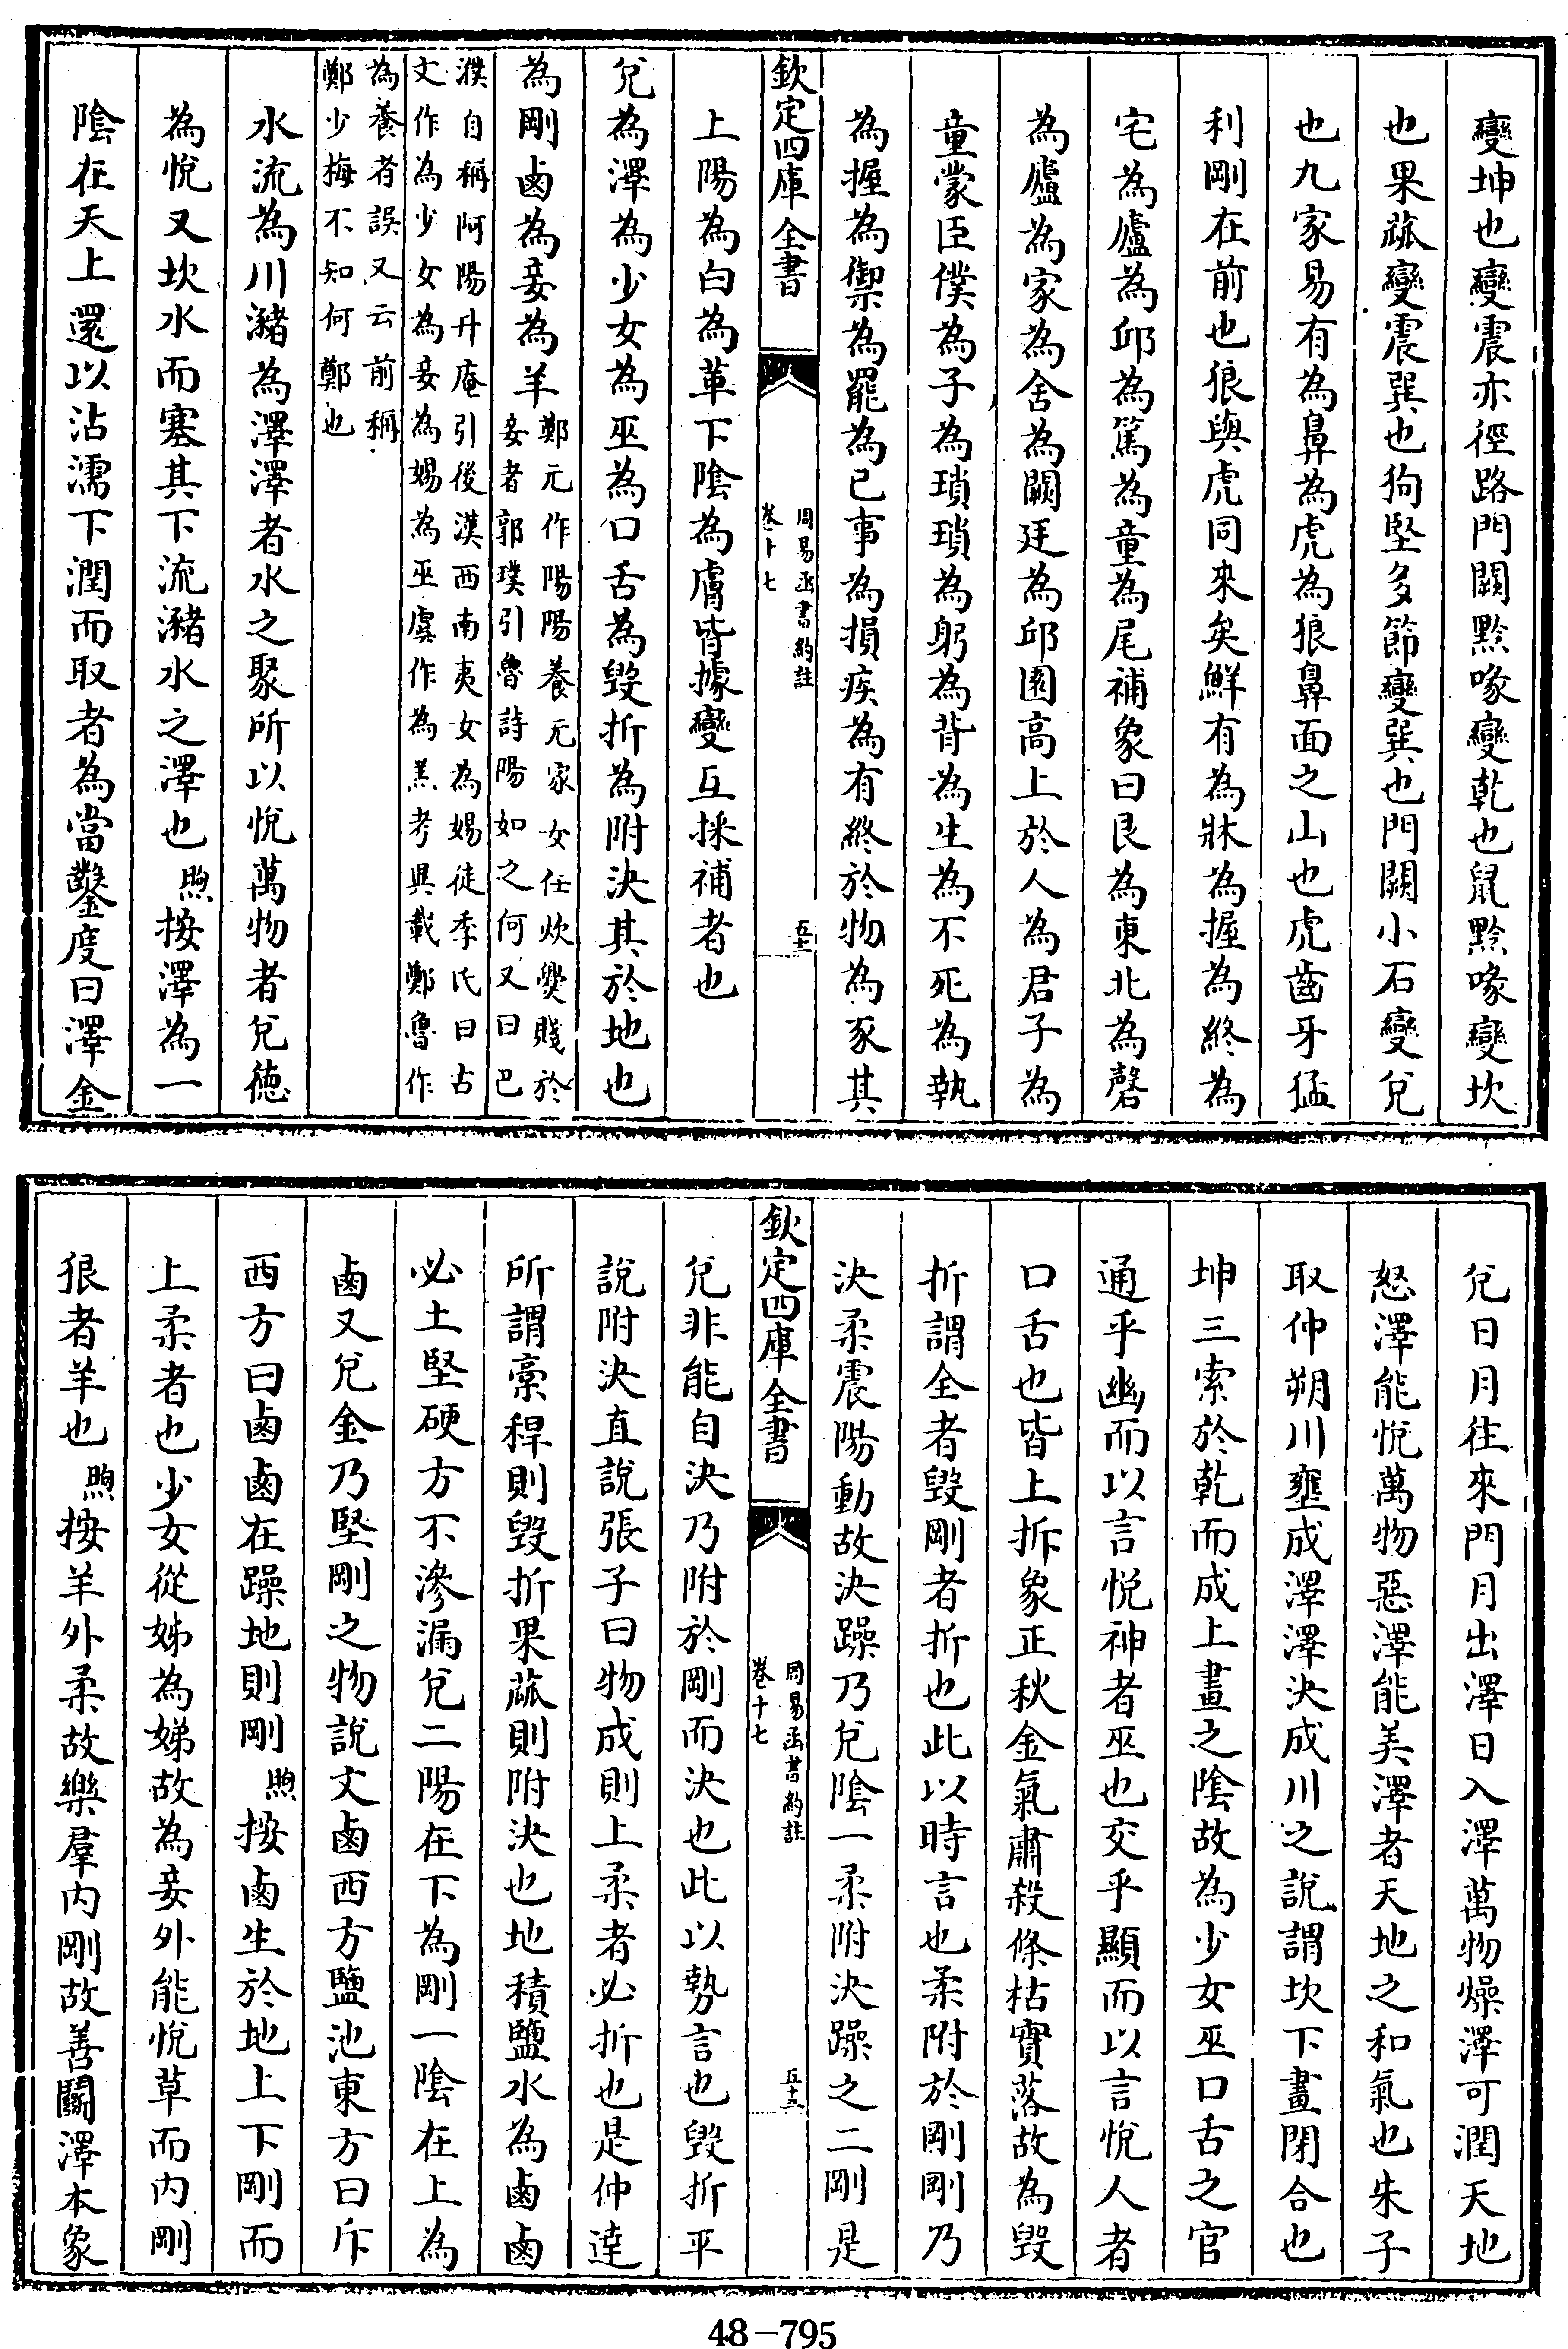 變坤也變震亦徑路門闕黔喙變乾也鼠黔喙變坎
也果蓏變震巽也狗堅多節變巽也門闕小石變兌
也九家易有為鼻為虎為狼鼻面之山也虎齒牙猛
利剛在前也狼與虎同來矣鮮有為牀為握為終為
宅為廬為邱為篤為童為尾補象曰艮為東北為磬
為廬為家為舍為闕廷為邱園高上於人為君子為
童蒙臣僕為子為瑣瑣為躬為背為生為不死為執
為握為禦為罷為已事為損疾為有終於物為豕其
欽定四庫全書
周易函書約註
卷十七
五十三
上陽為白為革下陰為膚皆據變互採補者也
兌為澤為少女為巫為口舌為毀折為附決其於地也
為剛鹵為妾為羊
鄭元作陽陽養无家女任炊爨賤於
妾者郭璞引魯詩陽如之何又曰巴
濮自稱阿陽升庵引後漢西南夷女為媵徒季氏曰古
文作為少女為妾為媵為巫虞作為羔考異載鄭魯作
為養者誤又云前稱
鄭少梅不知何鄭也
水流為川瀦為澤澤者水之聚所以悅萬物者兌德
為悅又坎水而塞其下流瀦水之澤也煦按澤為一
陰在天上還以沾濡下潤而取者為當鑿度曰澤金
兌日月往來門月出澤日入澤萬物燥澤可潤天地
怒澤能悅萬物惡澤能美澤者天地之和氣也朱子
取仲朔川壅成澤澤決成川之說謂坎下畫閉合也
坤三索於乾而成上畫之陰故為少女巫口舌之官
通乎幽而以言悅神者巫也交乎顯而以言悅人者
口舌也皆上拆象正秋金氣肅殺條枯實落故為毀
折謂全者毀剛者折也此以時言也柔附於剛剛乃
決柔震陽動故決躁乃兌陰一柔附決躁之二剛是
欽定四庫全書
周易函書約註
卷十七
五十三
兌非能自決乃附於剛而決也此以勢言也毀折平
說附決直說張子曰物成則上柔者必折也是仲達
所謂槀稈則毀折果蓏則附決也地積鹽水為鹵鹵
必土堅硬方不滲漏兌二陽在下為剛一陰在上為
鹵又兌金乃堅剛之物說文鹵西方鹽池東方曰斥
西方曰鹵鹵在躁地則剛煦按鹵生於地上下剛而
上柔者也少女從姊為娣故為妾外能悅草而內剛
狠者羊也煦按羊外柔故樂羣內剛故善鬭澤本象
48-795